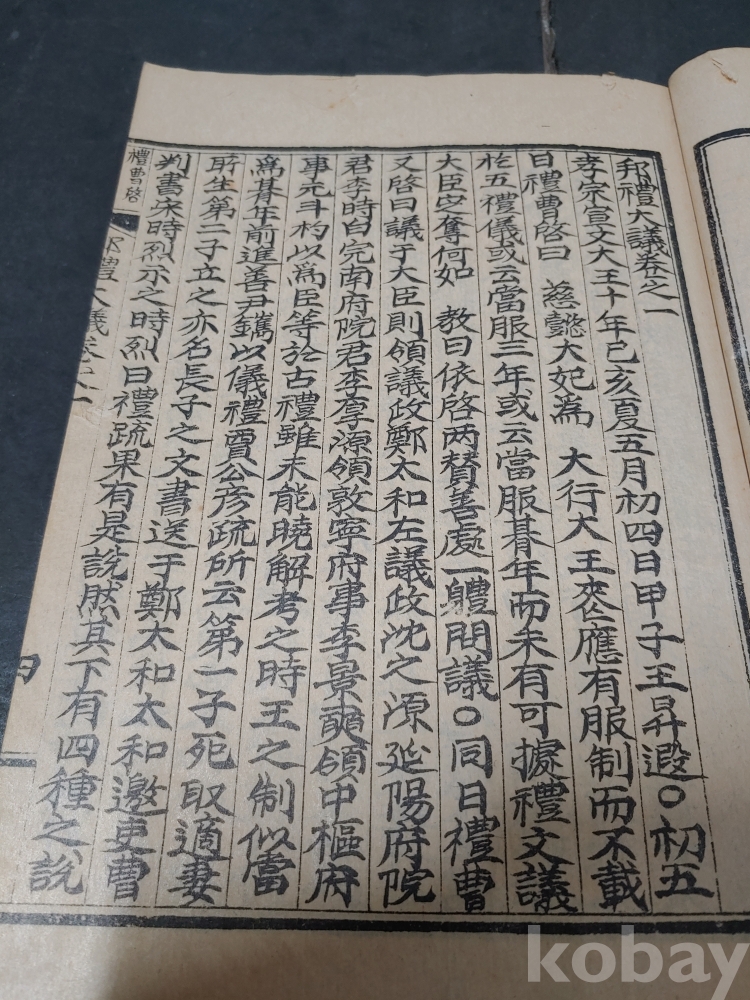 邦禮大議卷之一
孝宗宣文大王十年己亥夏五月初四日甲子王昇遐○初五
日禮曹啓曰 慈懿大妃爲 大行大王喪應有服制而不載
於五禮儀或云當服三年或云當服朞年而未有可據禮文議
大臣定奪何如 敎曰依啓两賛善處一軆問議○同日禮曹
又啓曰議于大臣則領議政鄭太和左議政沈之源延陽府院
君李時白完南府院君李厚源領敦寧府事李景奭領中樞府
事元斗杓以爲臣等於古禮雖未能曉解考之時王之制似當
爲朞年前進善尹鑴以儀禮賈公彦疏所云第一子死取適妻
所生第二子立之亦名長子之文書送于鄭太和太和邀吏曹
判書宋時烈示之時烈曰禮疏果有是說然其下有四種之說
禮曹啓
邦禮大議卷之一
kobay